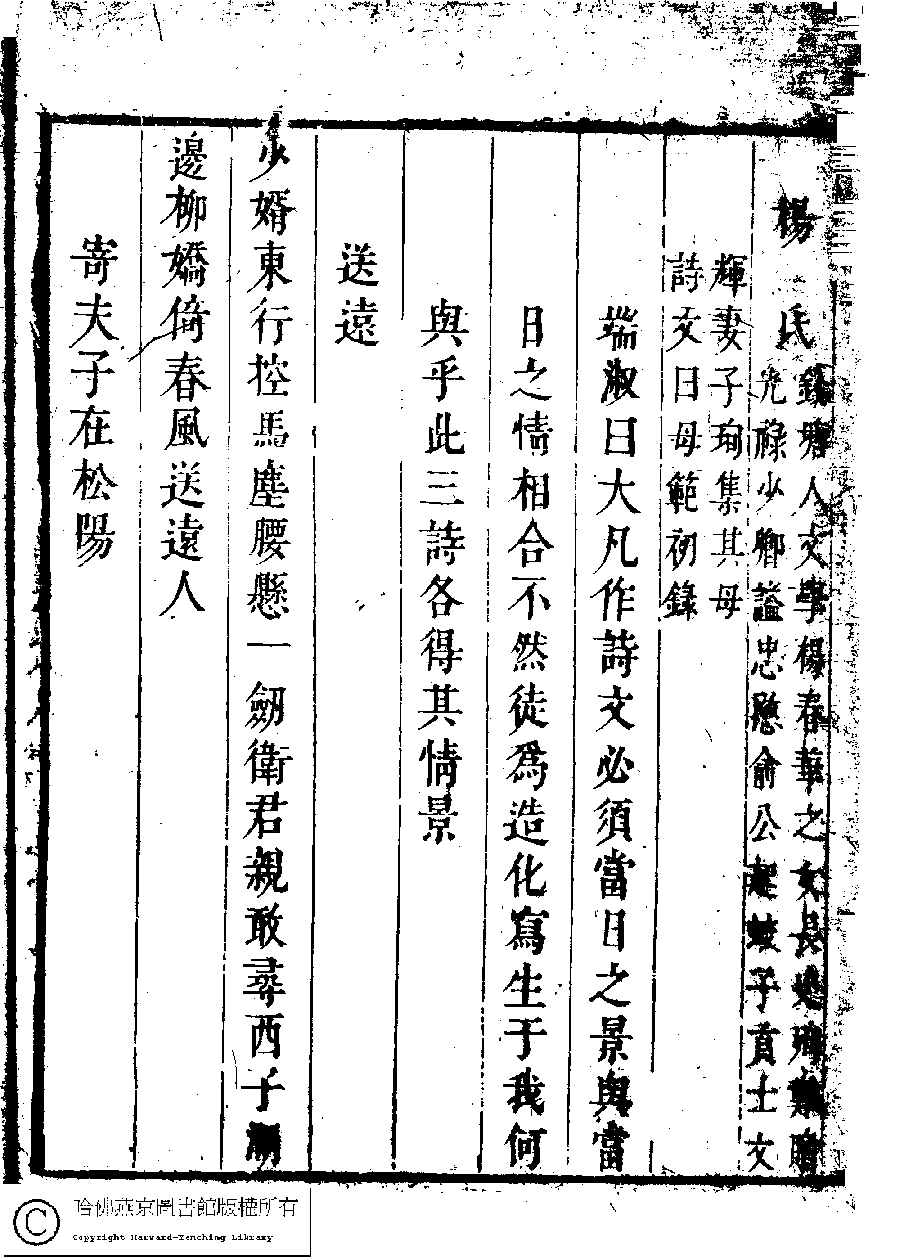 楊氏
錢塘人文學楊春華之女長適殉難贈
光祿少卿謚忠愍俞公起蛟子貢士文
輝妻子珣集其母
詩文曰母範初錄
端淑曰大凡作詩文必須當日之景與當
日之情相合不然徒爲造化寫生于我何
與乎此三詩各得其情景
送遠
少婿東行控馬塵腰懸一劒衛君親敢尋西子湖
邊柳嬌倚春風送遠人
寄夫子在松陽
哈佛燕京圖書館版權所有
Copyright Harvard-Yenching Library